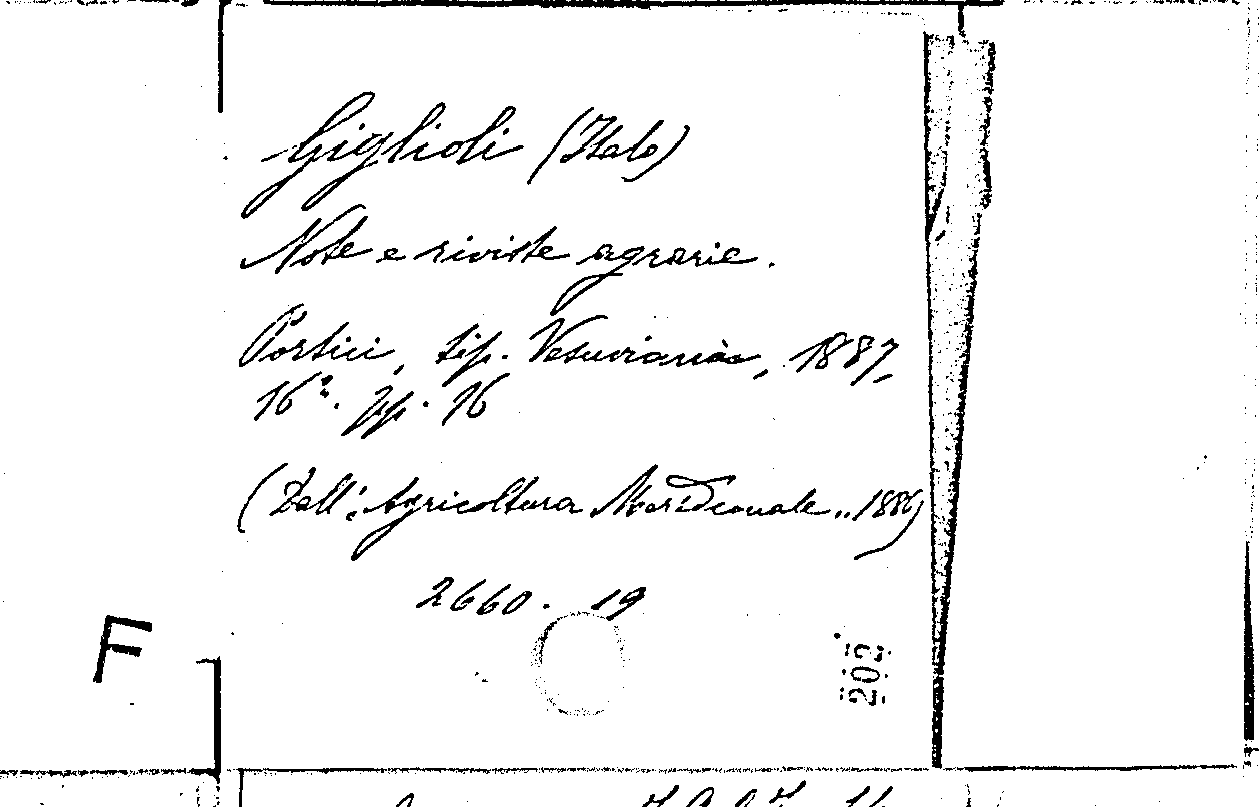 Giglioli (Italo)
Note e riviste agrarie.
Portici, tip. Vesuviana, 1887,
16°. pp. 16
(Dall': Agricoltura Meridionale„ 1886)
2660. 19
F
202